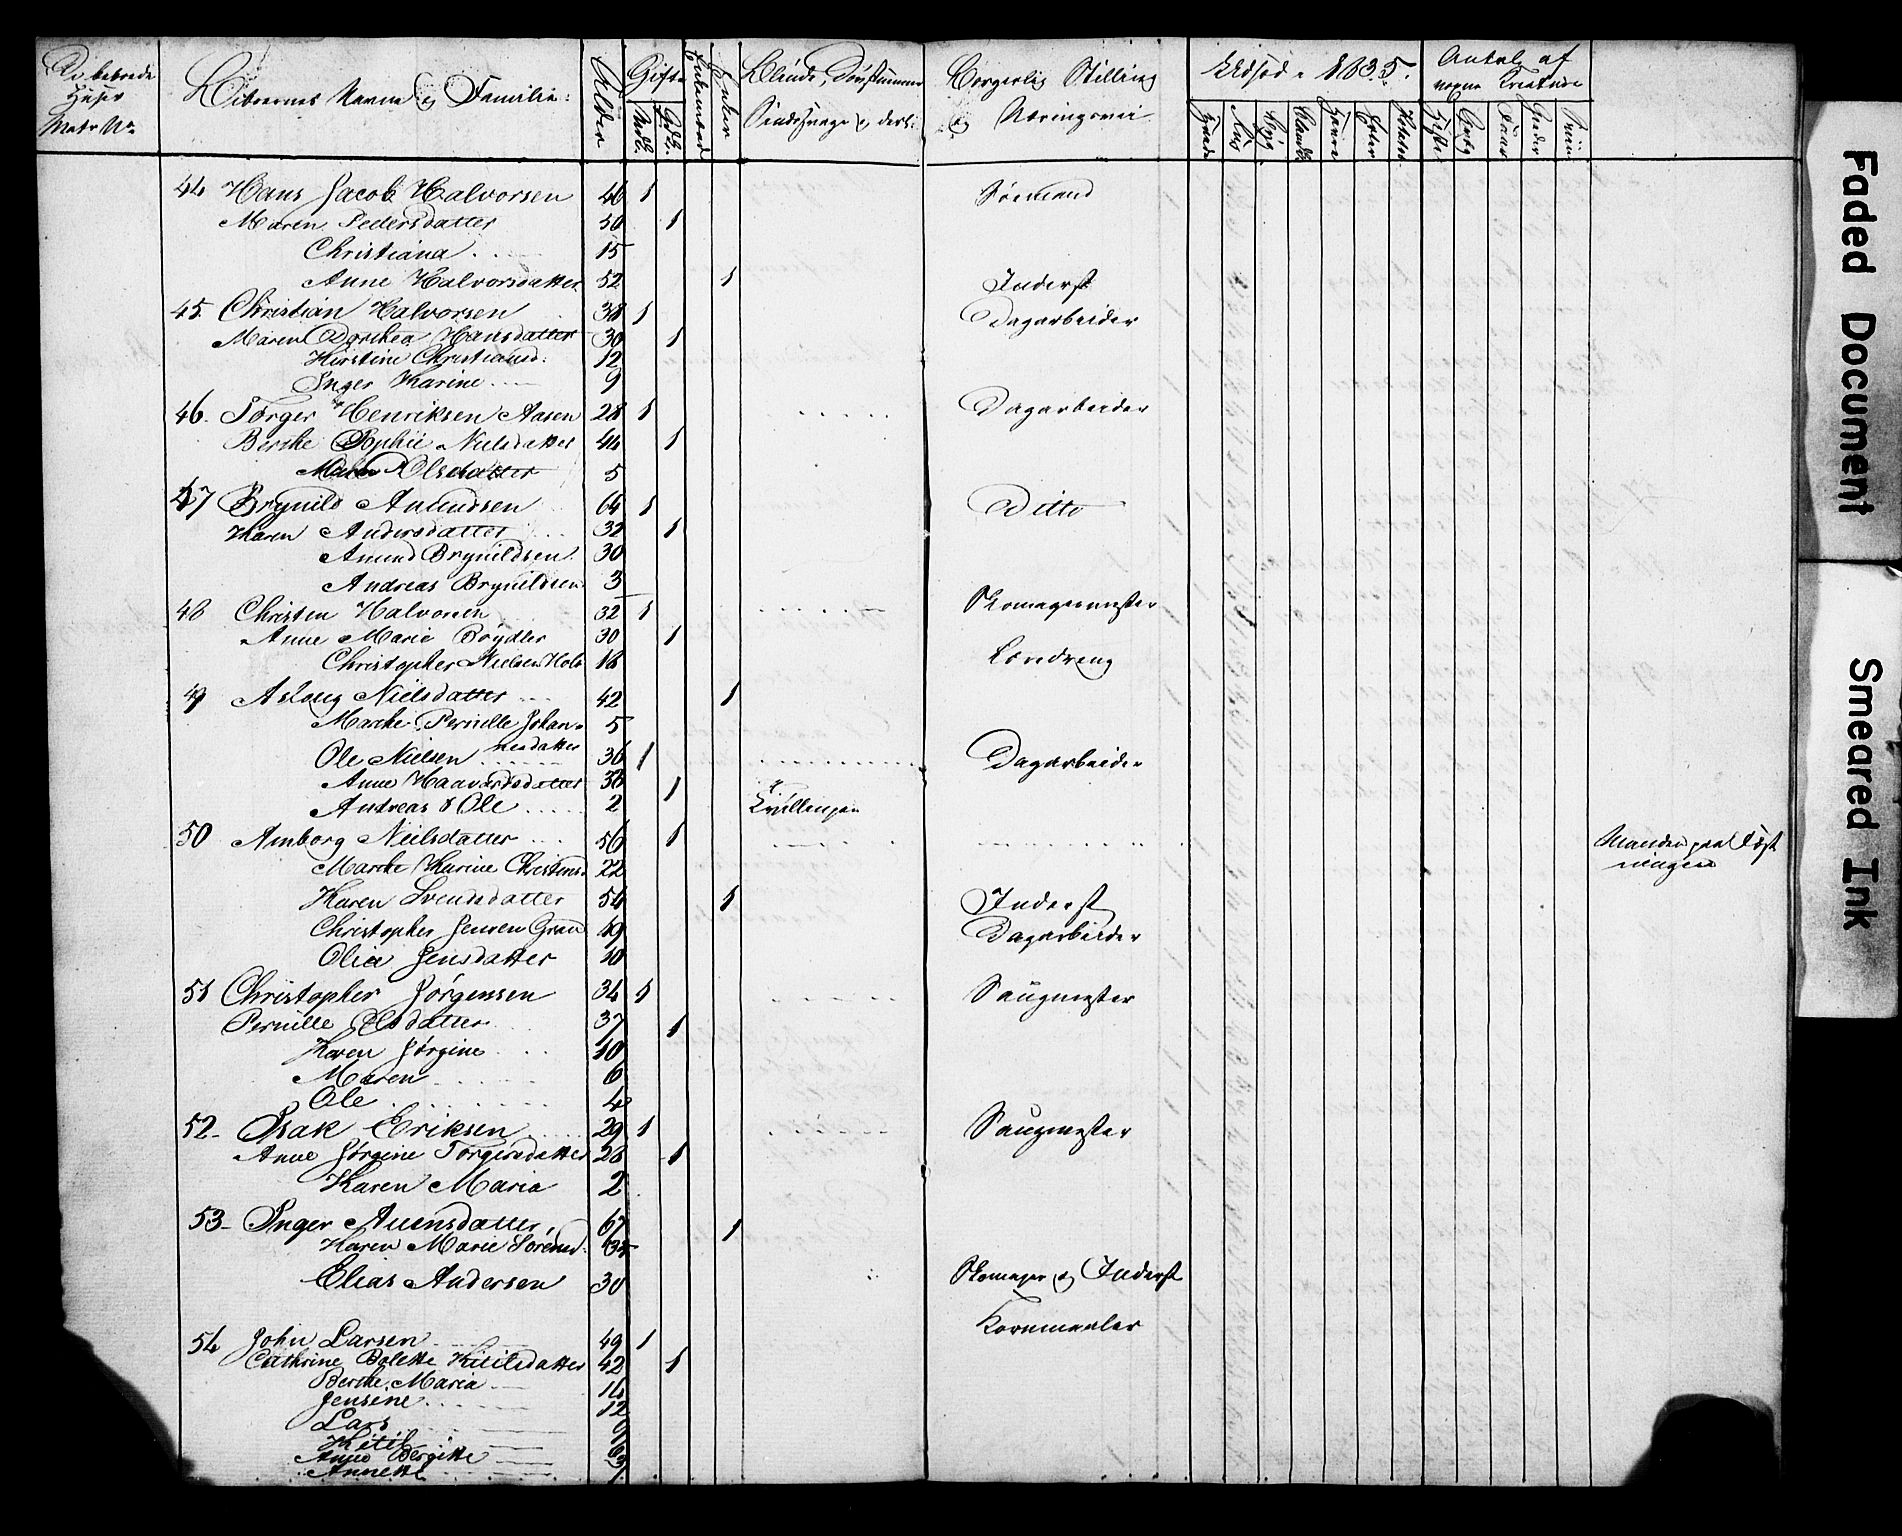 De beboede Huser Matr No
Beboernes Navne og Familie
Alder
Gifte
Enkemænd
Enker
Blinde, Døvstumme Sindssvage og desl:
Borgerlig Stilling og Næringsvei
Udsæd 1835.
Antal af
Kreature
Hvede
Rug
Byg
Bland
Havre
Erter
Heste
Faar
44 Hans Jacob Halvorsen 46 1 Sømand
Maren Pedersdatter 50 1
Christiana 15
Anne Halvorsdatter 52 1 Inderst
45. Christian Halvorsen 38 1 Dagarbeider
Maren Dorthea Hansdatter 30 1
Kirstine Christiansd: 12
Inger Karine 9
46. Torger Henriksen Aasen 28 1 Dagarbeider
Berthe Sophie Nielsdatter 44 1
Maren Olsdatter 5
47 Brynild Amundsen 64 1 Ditto
Karen Andersdatter 32 1
Amund Brynildsen 30
Andreas Brynildsen 3
48 Christen Halvorsen 32 1 Skomagermester
Anne Marie 30 1
Christopher Nielsen Holt 18 Læredreng
49 Aslaug Nielsdatter 42 1
Marthe Pernille Johan-
nesdatter 5
Ole Nielsen 36 1 Dagarbeider
Anne Haavardsdatter 38 1
Andreas & Ole 2 Tvillinger
50 Amborg Nielsdatter 56 1 Manden paa Fæst
ningen
Marthe Karine Christensd 22
Karen Svendsdatter 54 1 Inderst
Christopher Jensen Gran 49 Dagarbeider
Olea Jensdatter 10
51 Christopher Jørgensen 34 1 Saugmester
Pernille Olsdatter 37 1
Karen Jørgine 10
Maren 6
Ole 4
52. Isak Eriksen 29 1 Saugmester
Anne Jørgine Torgersdatter 28 1
Karen Maria 2
53 Inger Auensdatter 67 1
Karen Marie Sørensd.
Elias Andersen 30 Skomager og Inderst
54 John Larsen 49 1 Kornmaaler
Cathrine Bolette Kittilsdatter 42 1
Berthe Maria 14
Jensine 12
Lars 9
Kitil 6
Anne Bergitte 3
Annette 1
Faded Document
Smeared Ink